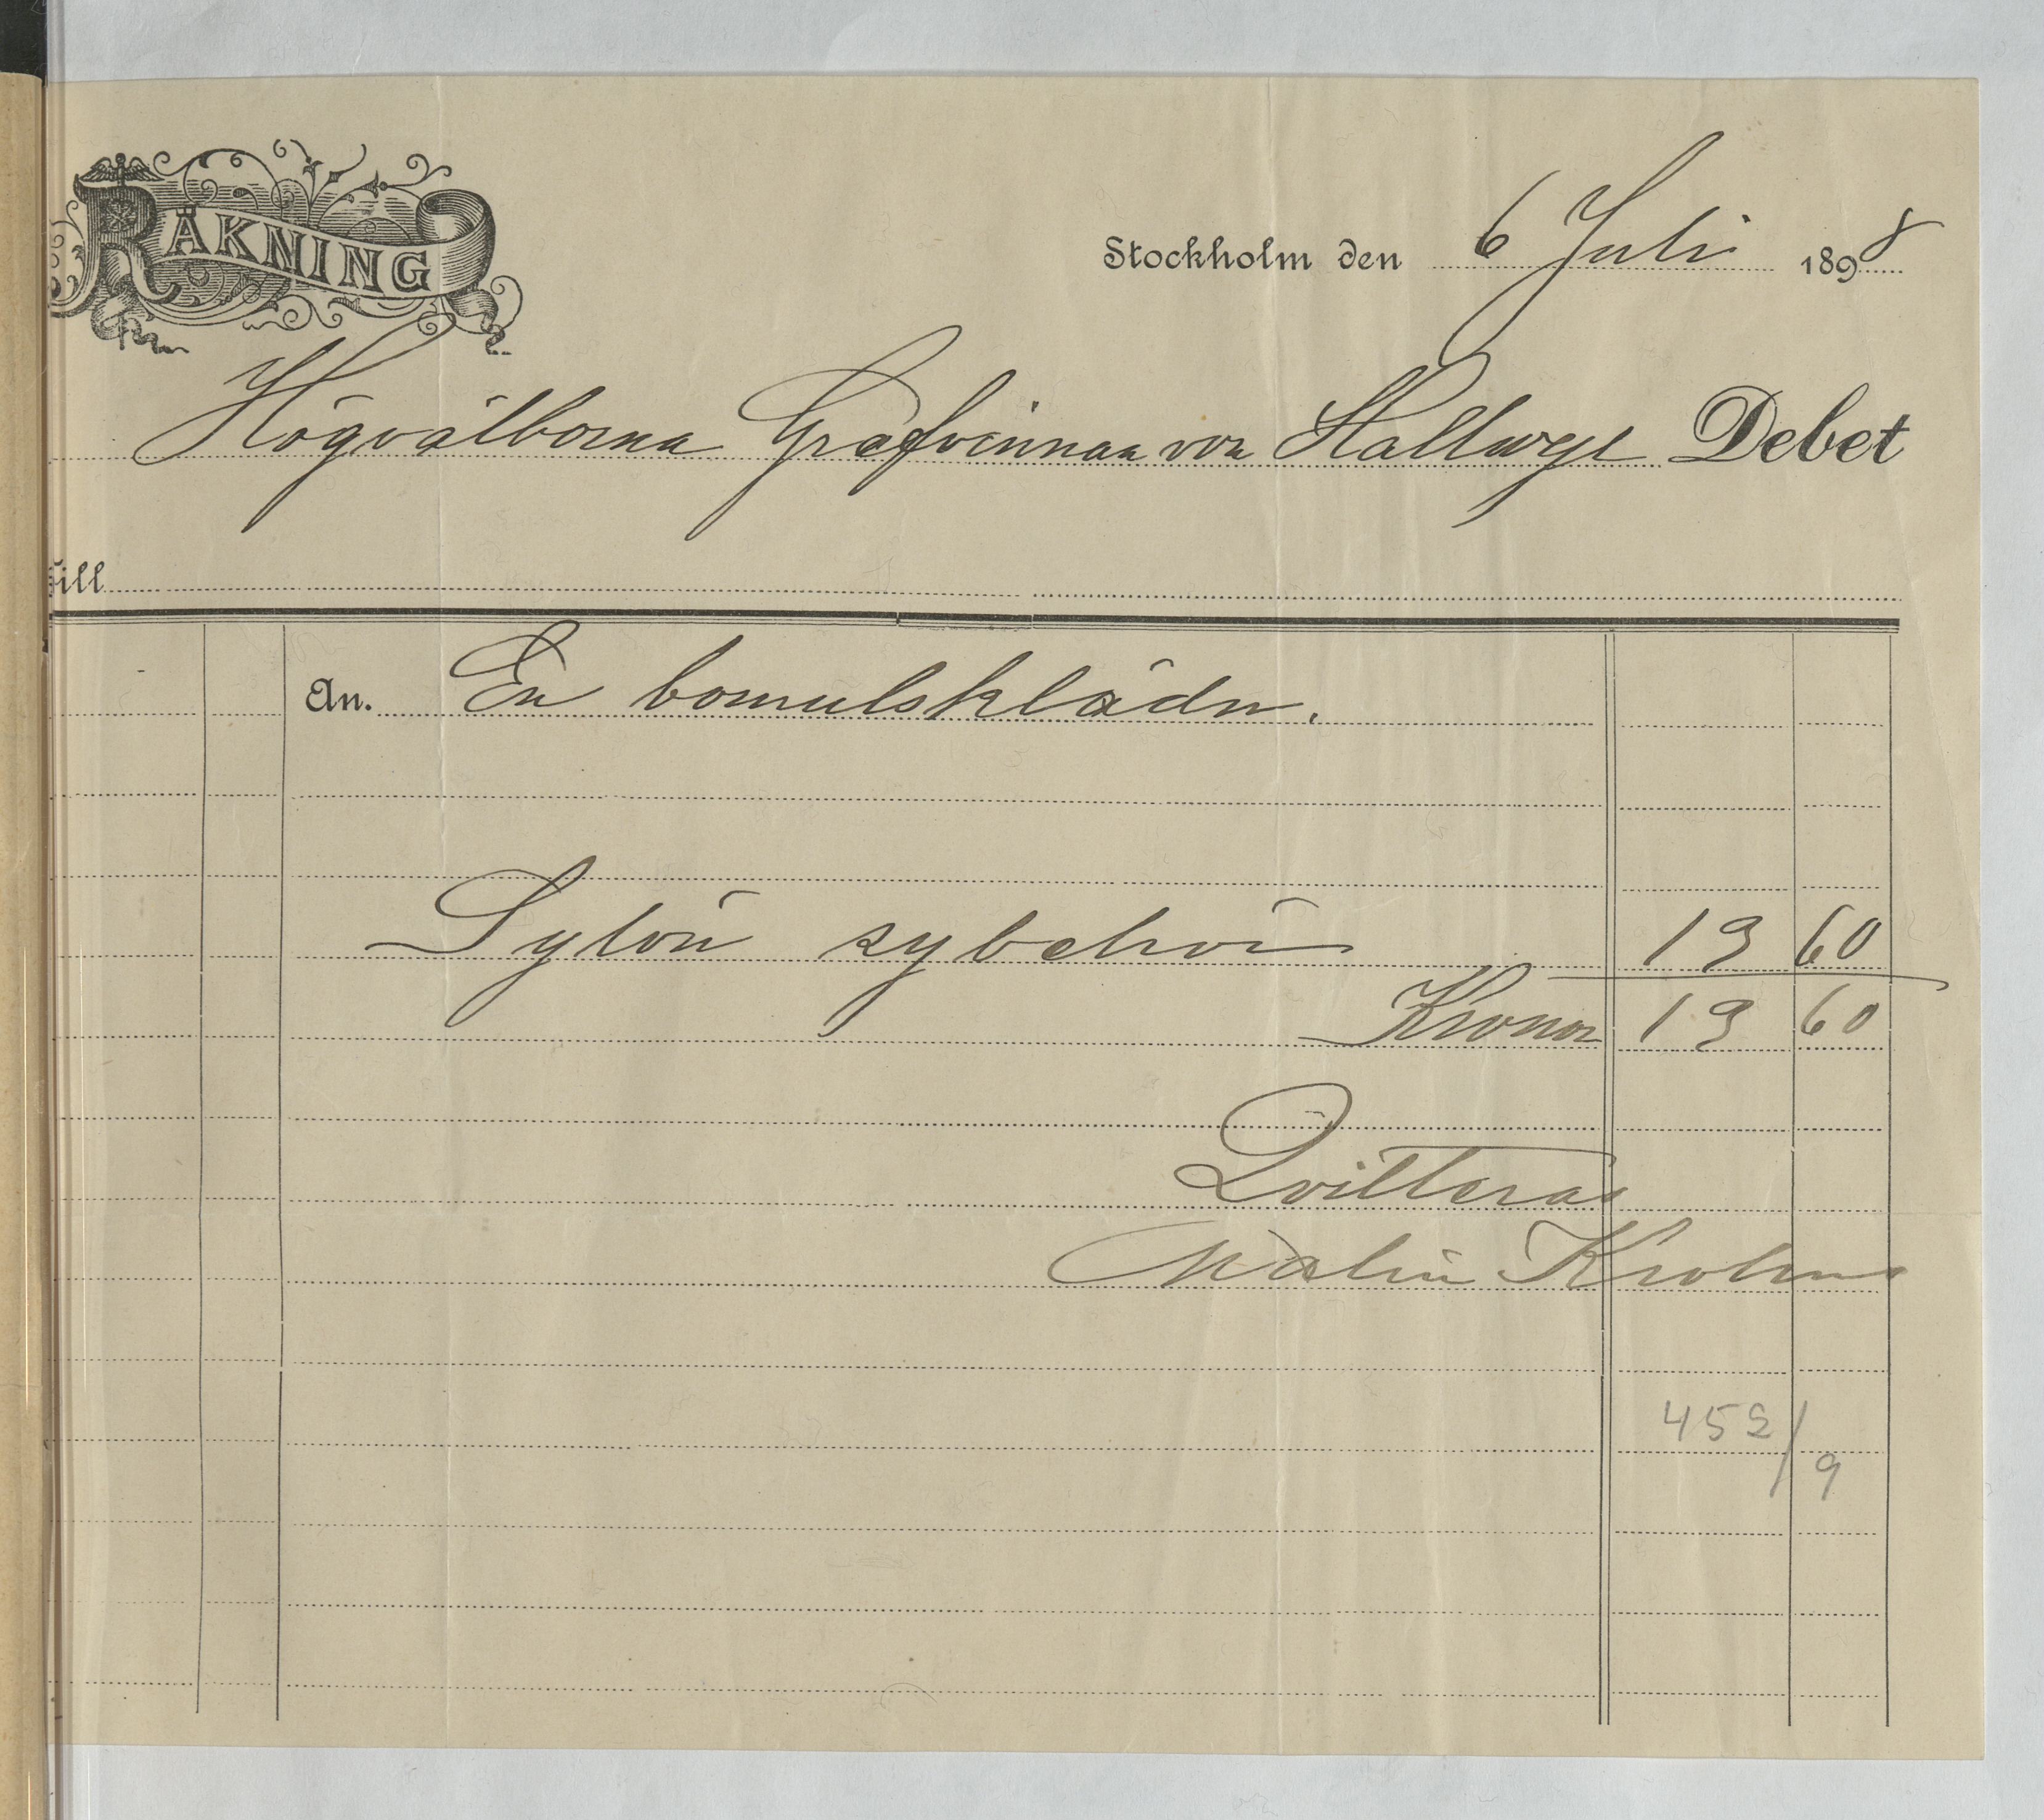 RÄKNING
Stockholm den 6 Juli 1898
Högvälborna Grefvinnan von Hallwyl Debet
Till
An. En bomulsklädn.
Sylön sybehör 13 60
Kronor 13 60
Qvitteras
Malin Krohns
452/9